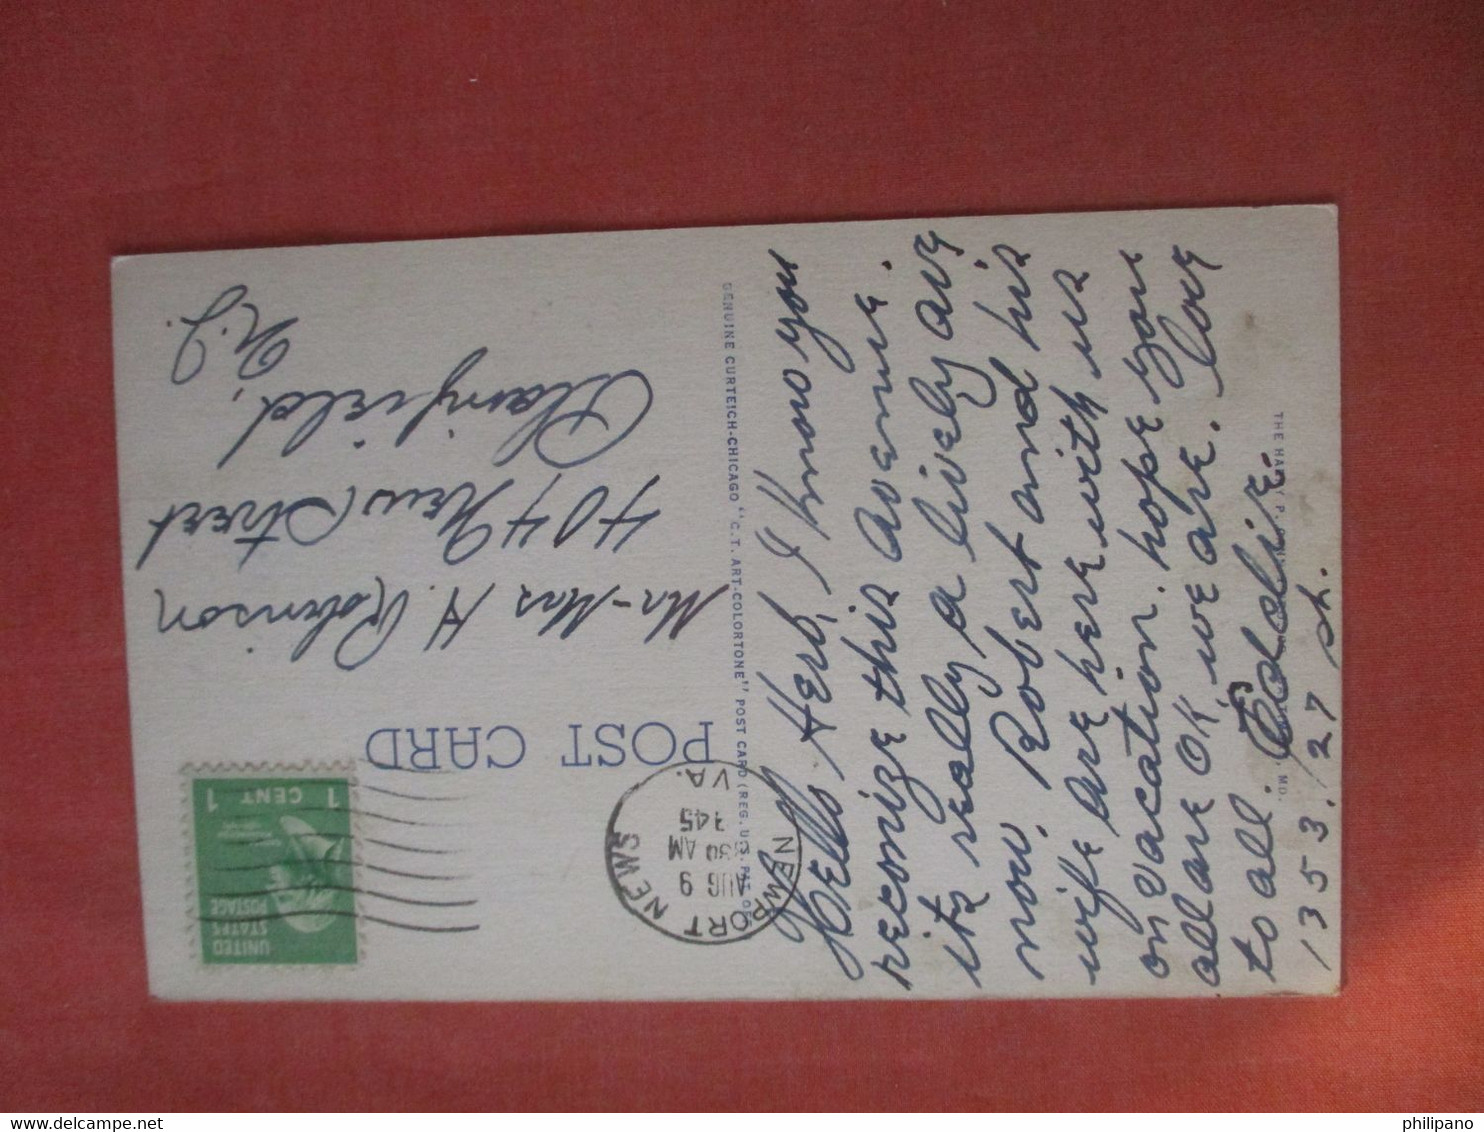 Hello Herb, I know you
recomize this avenue.
its really a lively ave
now. Robert and his
wife are here with us
on vacation. hope you
all are OK we are. Love
to all.
1353. 127 st.
POST CARD
Mr-Mrs H. Robinson
404 New Street
Plainfield,
N.J.
GENUINE CURTEICH-CHICAGO "C.T. ART-COLORTONE" POST CARD (REG. U.S. PAT. OFF.)
MD.
NEWPORT NEWS
AUG 9
30 AM
1945
VA.
UNITED
STATES
POSTAGE
1 CENT 1
philipano